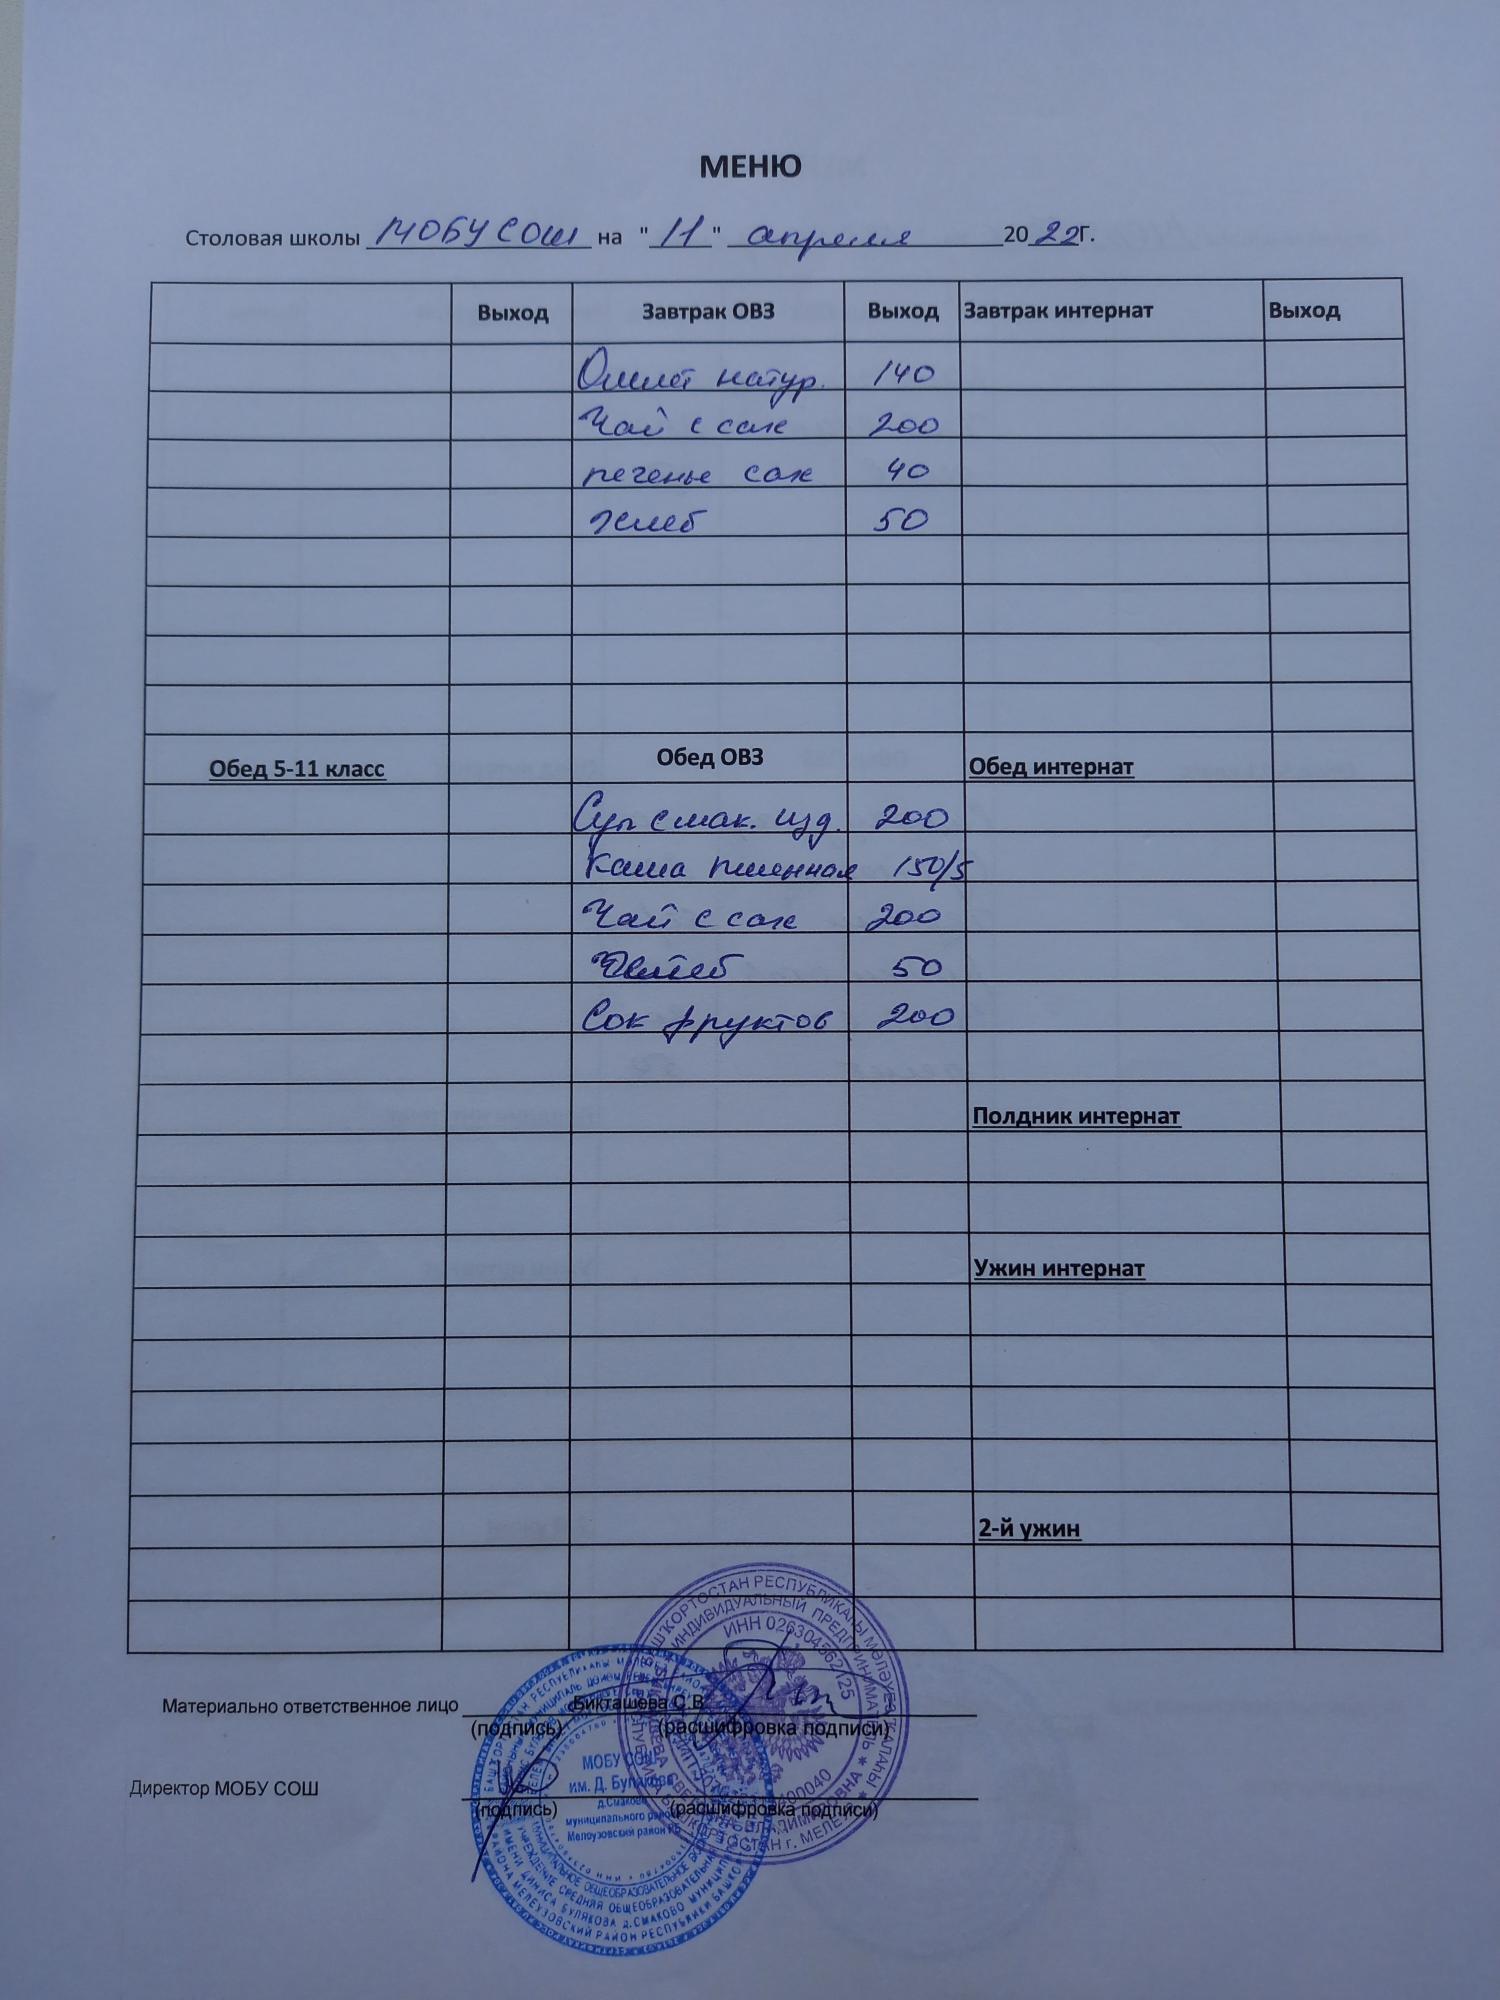 МЕНЮ
Столовая школы МОБУ СОШ на "11" апреля 2022г.
Выход Завтрак ОВЗ Выход Завтрак интернат Выход
Омлет натур. 140
Чай с сах 200
печенье сах 40
хлеб 50
Обед 5-11 класс Обед ОВЗ Обед интернат
Суп с мак. изд. 200
Каша пшенная 150/5
Чай с сах 200
Хлеб 50
Сок фруктов 200
Полдник интернат
Ужин интернат
2-й ужин
Материально ответственное лицо Бикташева С.В.
(подпись) (расшифровка подписи)
Директор МОБУ СОШ
(подпись) (расшифровка подписи)
МОБУ СОШ
им. Д. Булякова
д.Смаково
муниципального района
Мелеузовский район РБ
ИНДИВИДУАЛЬНЫЙ ПРЕДПРИНИМАТЕЛЬ
ИНН 026304562125